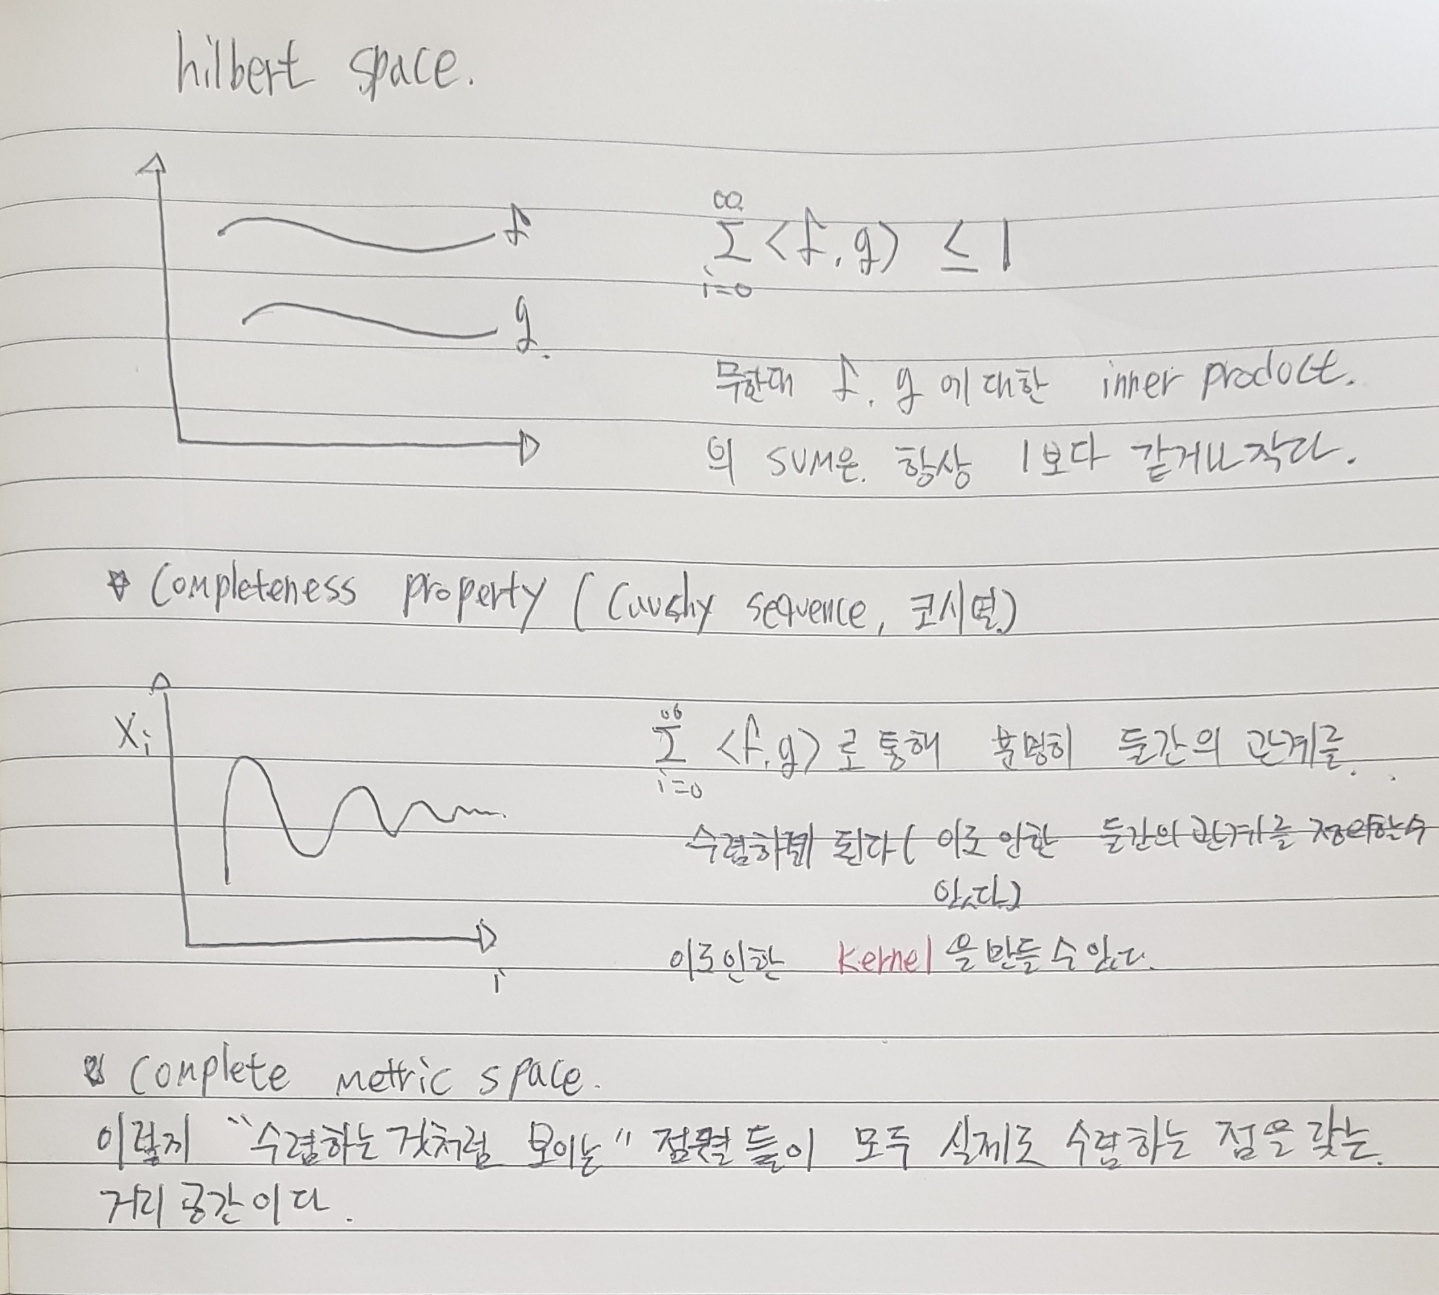 hilbert space.
f
g.
∞
Σ <f, g> ≤ 1
i=0
무한대 f, g 에 대한 inner product.
의 sum은 항상 1보다 같거나 작다.
Completeness property ( Cuushy sequence, 코시열)
Xi
i
∞
Σ <f, g> 로 통해 분명히 둘간의 관계를.
i=0
수렴하게 된다 ( 이로 인한 둘간의 관계를 정의할수
있다)
이로인한 Kernel을 만들 수 있다.
Complete metric space.
이렇게 "수렴하는 것처럼 보이는" 점열들이 모두 실제로 수렴하는 점을 갖는.
거리 공간이다.